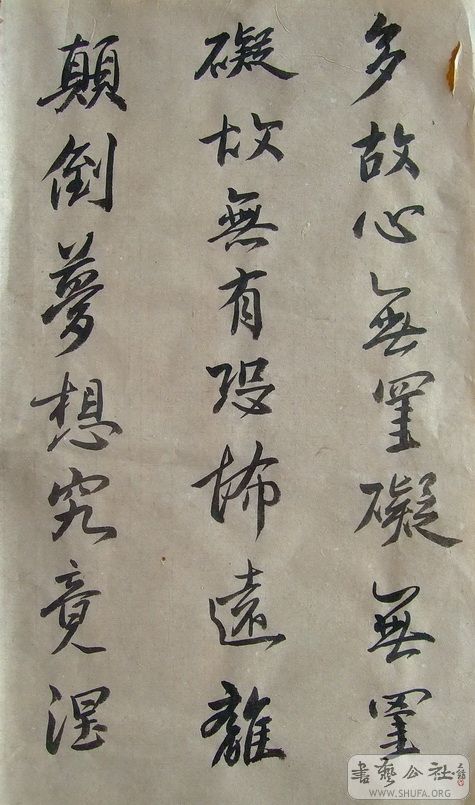 多故心無罣礙無罣
礙故無有恐怖遠離
顛倒夢想究竟涅
書藝公社
www.SHUFA.ORG